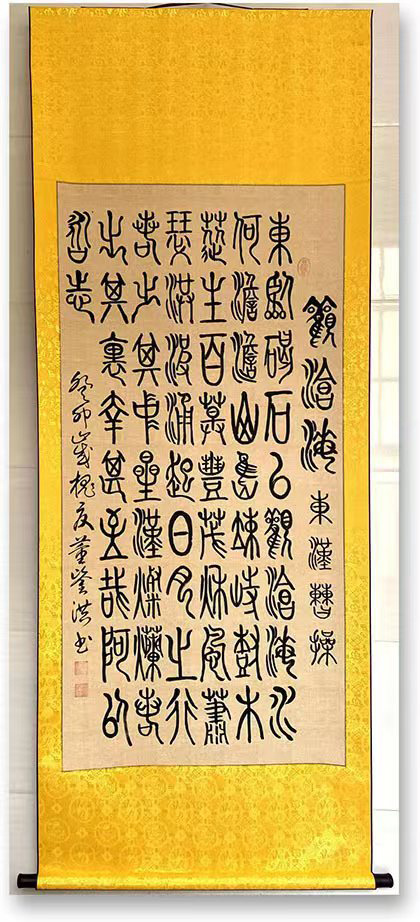 觀滄海 東漢曹操
東臨碣石以觀滄海水
何澹澹山島竦峙樹木
叢生百草豐茂秋風蕭
瑟洪波涌起日月之行
若出其中星漢燦爛若
出其裏幸甚至哉歌以
詠志
癸卯歲槐夏董鑒洪書